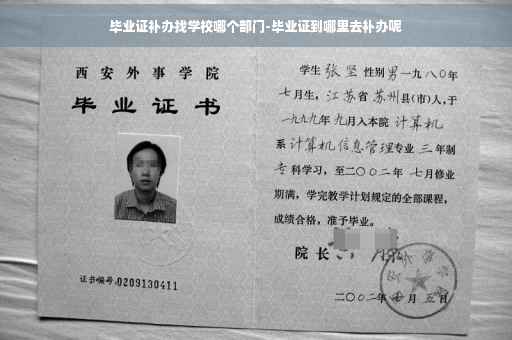 毕业证补办找学校哪个部门-毕业证到哪里去补办呢
西安外事学院
毕业证书
证书编号:0209130411
学生 张坚 性别 男 一九八〇年
七月生, 江苏省 苏州县(市)人,于
一九九九年 九月入本院 计算机
系 计算机信息管理专业 三 年制
专 科学习,至二〇〇二年 七月修业
期满,学完教学计划规定的全部课程,
成绩合格,准予毕业。
院长
二〇〇二年 七 月 五 日